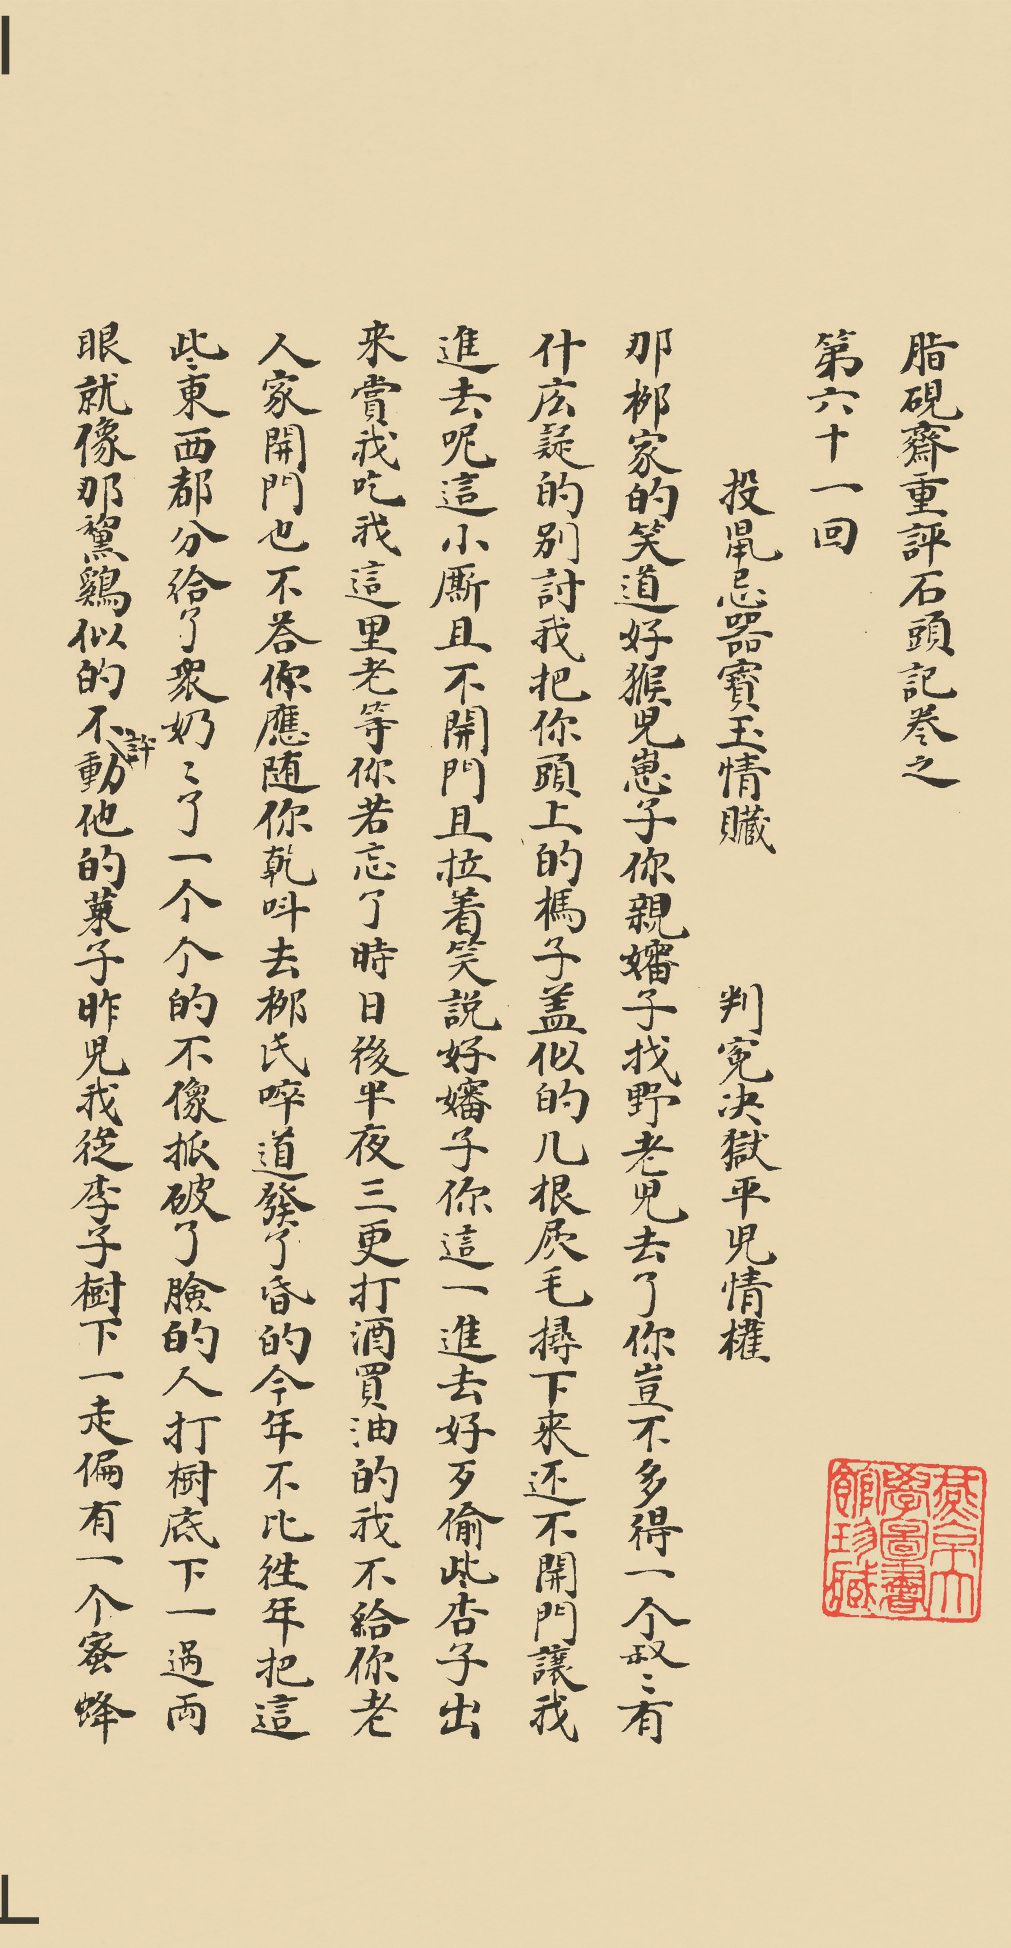 脂硯齋重評石頭記卷之
第六十一回
投鼠忌器寳玉情贜　判寃决獄平児情權
那栁家的笑道好猴児崽子你親嬸子找野老児去了你豈不多得一个叔〻有
什広疑的别討我把你頭上的榪子盖似的几根㞞毛撏下来还不開門讓我
進去呢這小厮且不開門且拉着笑説好嬸子你這一進去好歹偷些杏子出
来賞我吃我這里老等你若忘了時日後半夜三更打酒買油的我不給你老
人家開門也不荅你應随你乾呌去栁氏啐道發了昏的今年不比徃年把這
些東西都分給了衆奶〻了一个个的不像抓破了臉的人打樹底下一過両
眼就像那黧鷄似的不許動他的菓子昨児我從李子樹下一走偏有一个蜜蜂
燕京大學圖書館珍藏